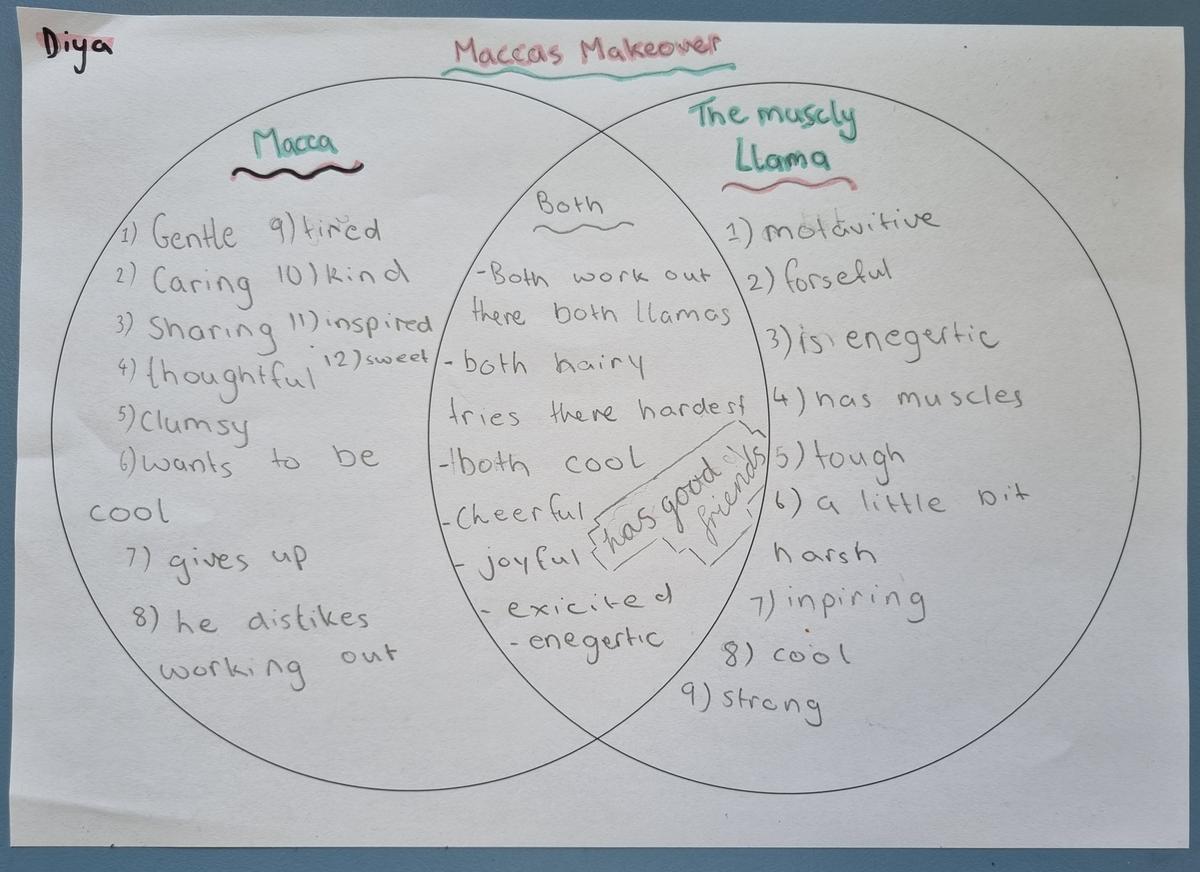 Diya
Maccas Makeover
Macca
1) Gentle 9) tired
2) Caring 10) kind
3) Sharing 11) inspired
4) thoughtful 12) sweet
5) Clumsy
6) wants to be
cool
7) gives up
8) he dislikes
working out
Both
- Both work out
there both llamas
- both hairy
tries there hardest
- both cool
- Cheerful
- joyful
has good
friends
- exicited
- enegertic
The muscly
Llama
1) motavitive
2) forseful
3) is enegertic
4) has muscles
5) tough
6) a little bit
harsh
7) inpiring
8) cool
9) strong